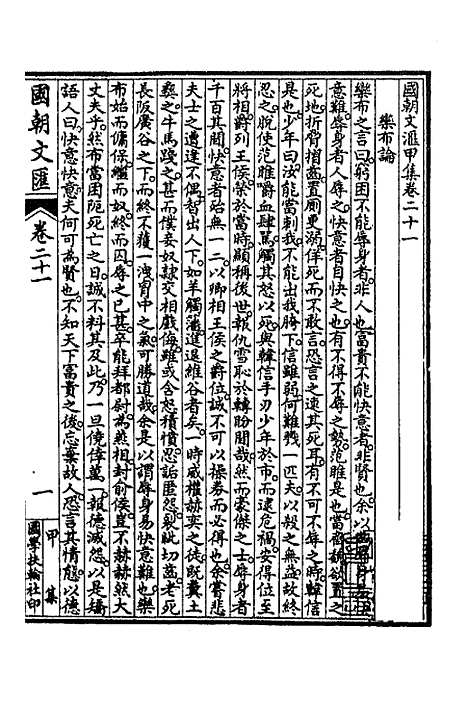 國朝文滙甲集卷二十一
欒布論
欒布之言曰窮困不能辱身者非人也富貴不能快意者非賢也余以
意難辱身者人辱之快意者自快之也有不得不辱之勢范雎是也當魏齊欲置之
死地折脅摺齒置厠更溺佯死而不敢言恐言之速其死耳有不可不辱之時韓信
是也少年曰汝能當刺我不能出我胯下信雖弱何難戮一匹夫以殺之無益故終
忍之脫使范雎爵血肆罵觸其怒以死與韓信手刃少年於市而逮危禍安得位至
將相爵列王侯榮於當時顯稱後世報仇雪恥於韓盼間哉然而豪傑之士辱身者
千百其間快意者殆無一二以卿相王侯之爵位誠不可以操券而必得也余嘗悲
夫士之遭逢不偶智出人下如羊觸藩進退維谷者矣一時威權赫奕之徒既糞土
棄之牛馬踐之甚而僕妾奴隸交相戲侮雖或含怒積憤忍詬匿怨裂眦切齒老死
長阪廣谷之下而終不獲一洩胷中之氣可勝道哉余是以謂辱身易快意難也欒
布始而傭保繼而奴終而囚辱之已甚卒能拜都尉為燕相封俞侯豈不赫赫然大
丈夫乎然布當困阨死亡之日誠不料其及此乃一旦僥倖萬一報德滅怨以是矯
語人曰快意快意夫何可為賢也不知天下富貴之倦忘棄故人恐言其情態以德
國朝文匯
卷二十一
一
甲集
國學扶輪社印